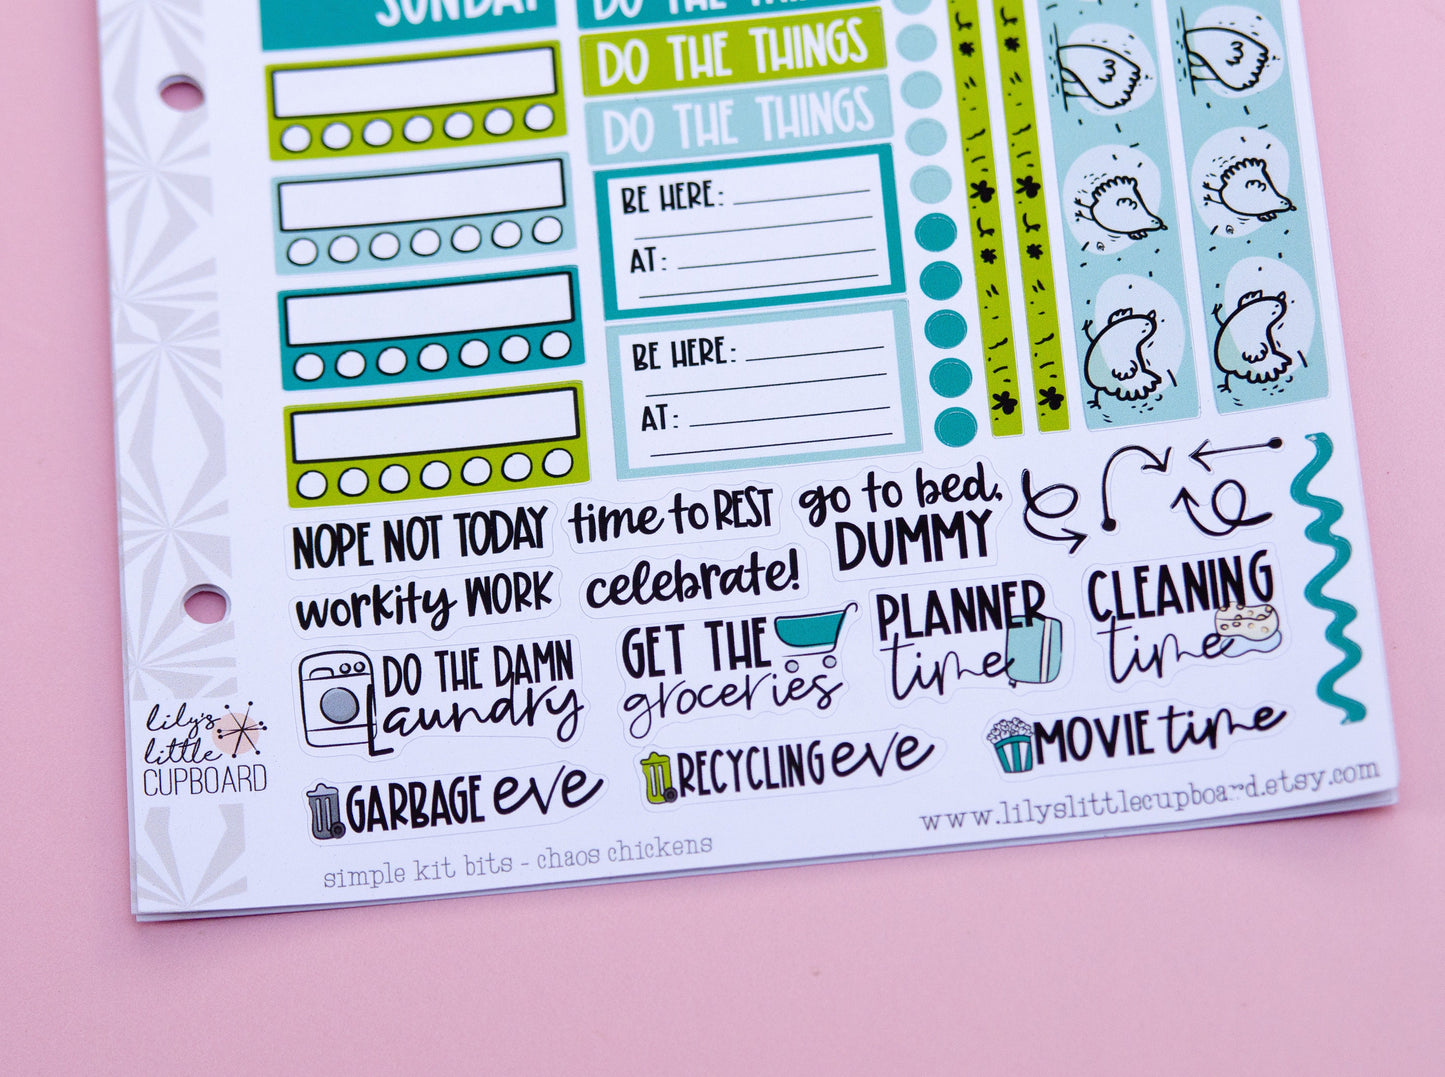 SUNDAY
DO THE THINGS
DO THE THINGS
DO THE THINGS
BE HERE:
AT:
BE HERE:
AT:
NOPE NOT TODAY
time to REST
go to bed,
DUMMY
workity WORK
celebrate!
DO THE DAMN
Laundry
GET THE
groceries
PLANNER
time
CLEANING
time
GARBAGE eve
RECYCLING eve
MOVIE time
lily's
little
CUPBOARD
simple kit bits - chaos chickens
www.lilyslittlecupboard.etsy.com